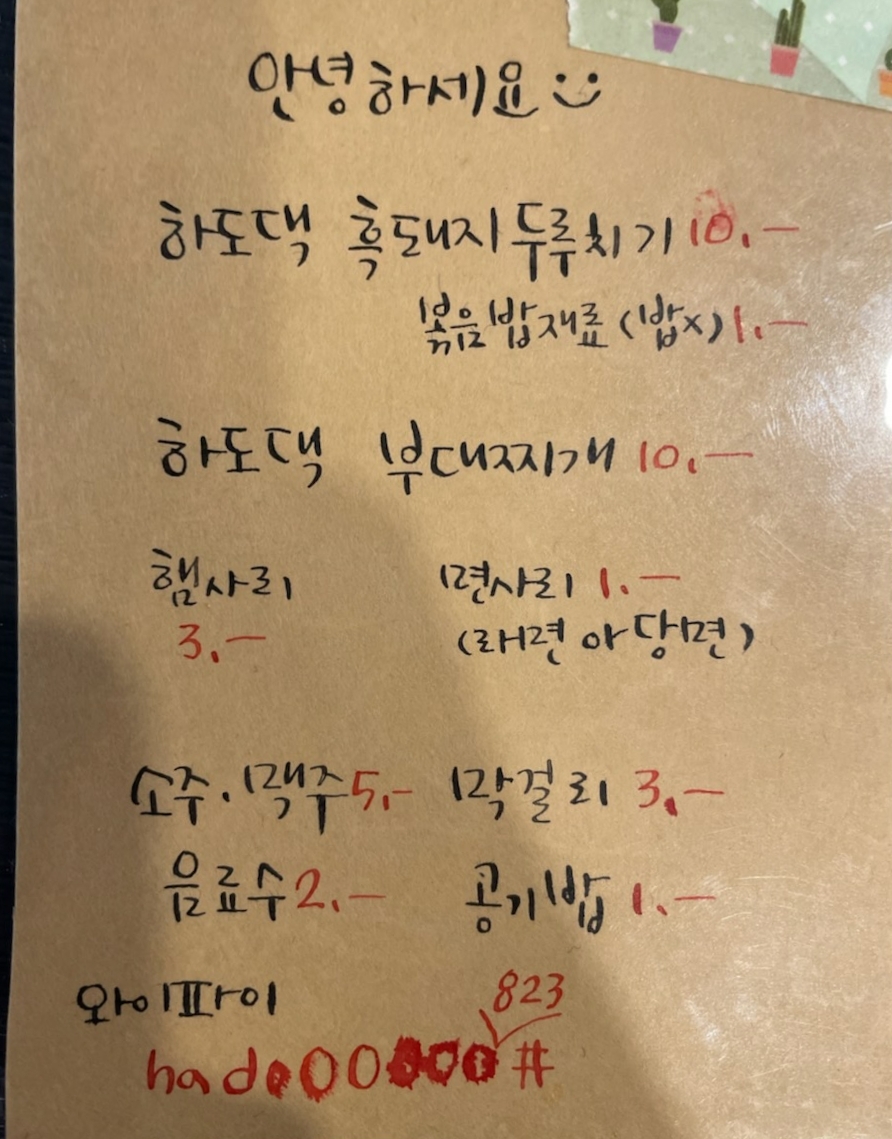 안녕하세요
하도댁 흑돼지 두루치기 10.-
볶음밥재료 (밥x) 1.-
하도댁 부대찌개 10.-
햄사리 면사리 1.-
3.- (라면 or 당면)
소주.맥주 5.- 막걸리 3.-
음료수 2.- 공기밥 1.-
와이파이
823
#